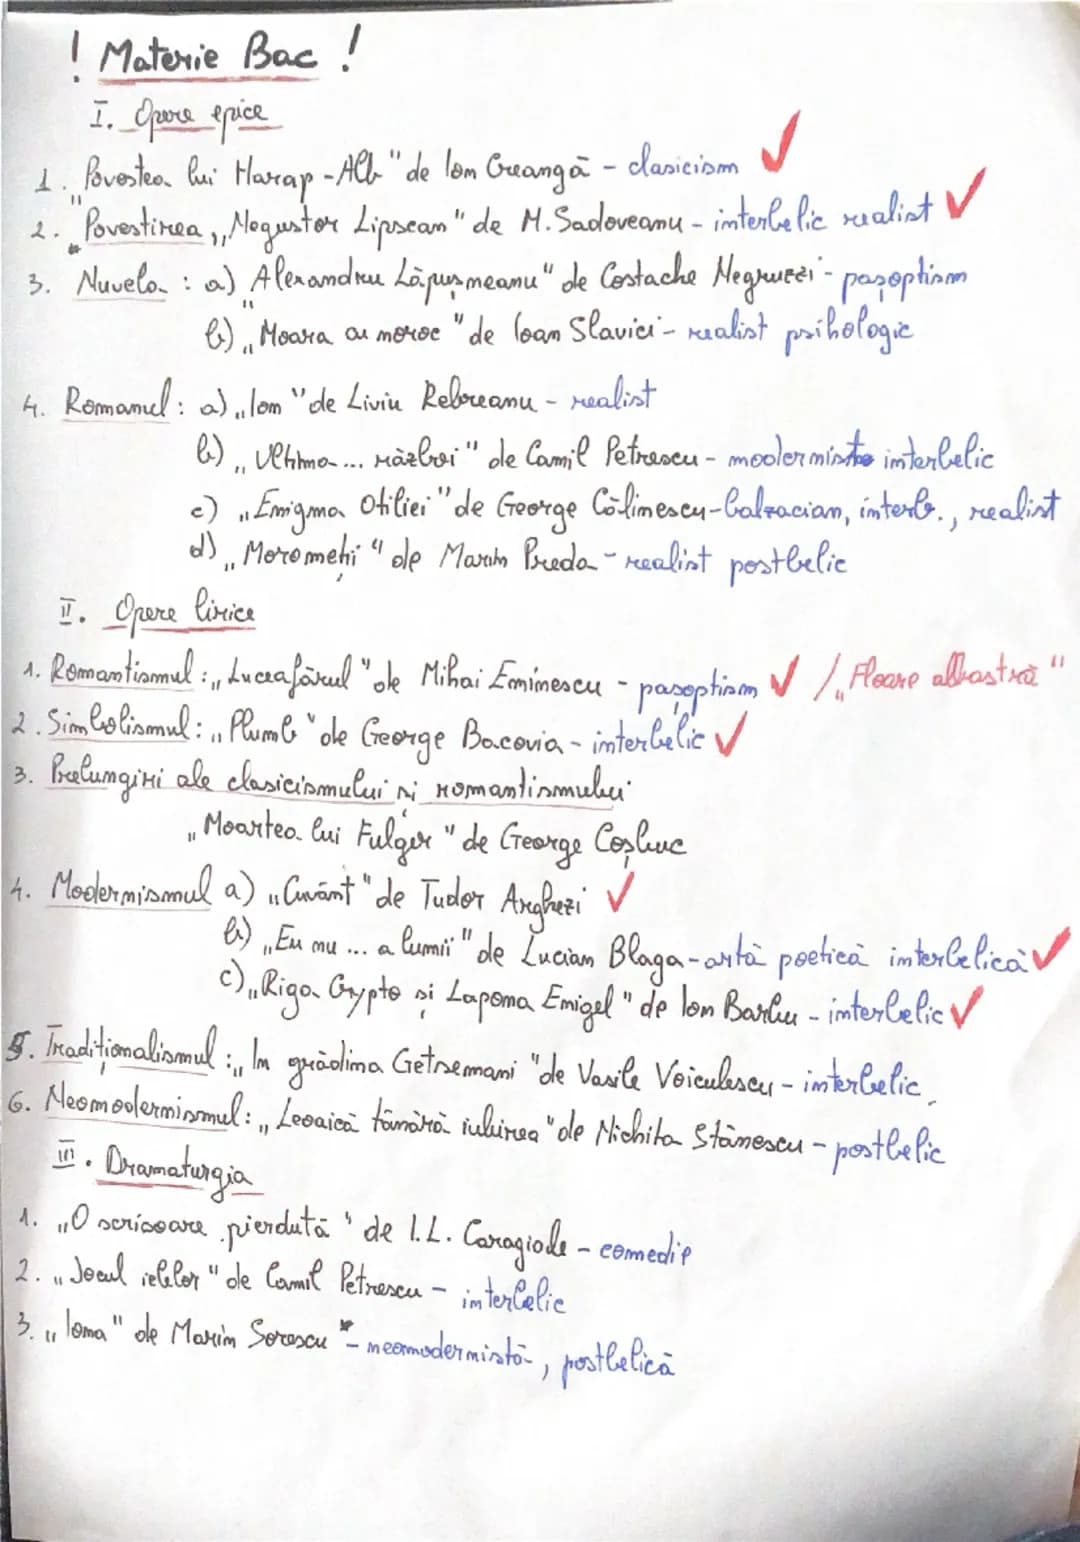 ! Materie Bac !
I. Opere epice
1. „Povestea lui Harap-Alb" de Ion Creangă - clasicism ✓
2. „Povestirea „Negustor Lipscan" de M. Sadoveanu - interbelic realist ✓
3. Nuvela: a) „Alexandru Lăpușneanu" de Costache Negruzzi - pașoptism
b) „Moara cu noroc" de Ioan Slavici - realist psihologic
4. Romanul: a) „Ion" de Liviu Rebreanu - realist
b) „Ultima... război" de Camil Petrescu - modernist interbelic
c) „Enigma Otiliei" de George Călinescu - balzacian, interb., realist
d) „Moromeții" de Marin Preda - realist postbelic
II. Opere lirice
1. Romantismul: „Luceafărul" de Mihai Eminescu - pașoptism ✓ / „Floare albastră"
2. Simbolismul: „Plumb" de George Bacovia - interbelic ✓
3. Prelungiri ale clasicismului și romantismului
„Moartea lui Fulger" de George Coșbuc
4. Modernismul a) „Cuvânt" de Tudor Arghezi ✓
b) „Eu nu ... a lumii" de Lucian Blaga - artă poetică interbelică ✓
c) „Riga Crypto și Lapona Enigel" de Ion Barbu - interbelic ✓
5. Tradiționalismul: „În grădina Getsemani" de Vasile Voiculescu - interbelic
6. Neomodernismul: „Leoaică tânără iubirea" de Nichita Stănescu - postbelic
III. Dramaturgia
1. „O scrisoare pierdută" de I.L. Caragiale - comedie
2. „Jocul ielelor" de Camil Petrescu - interbelic
3. „Iona" de Marin Sorescu * - neomodernistă, postbelică